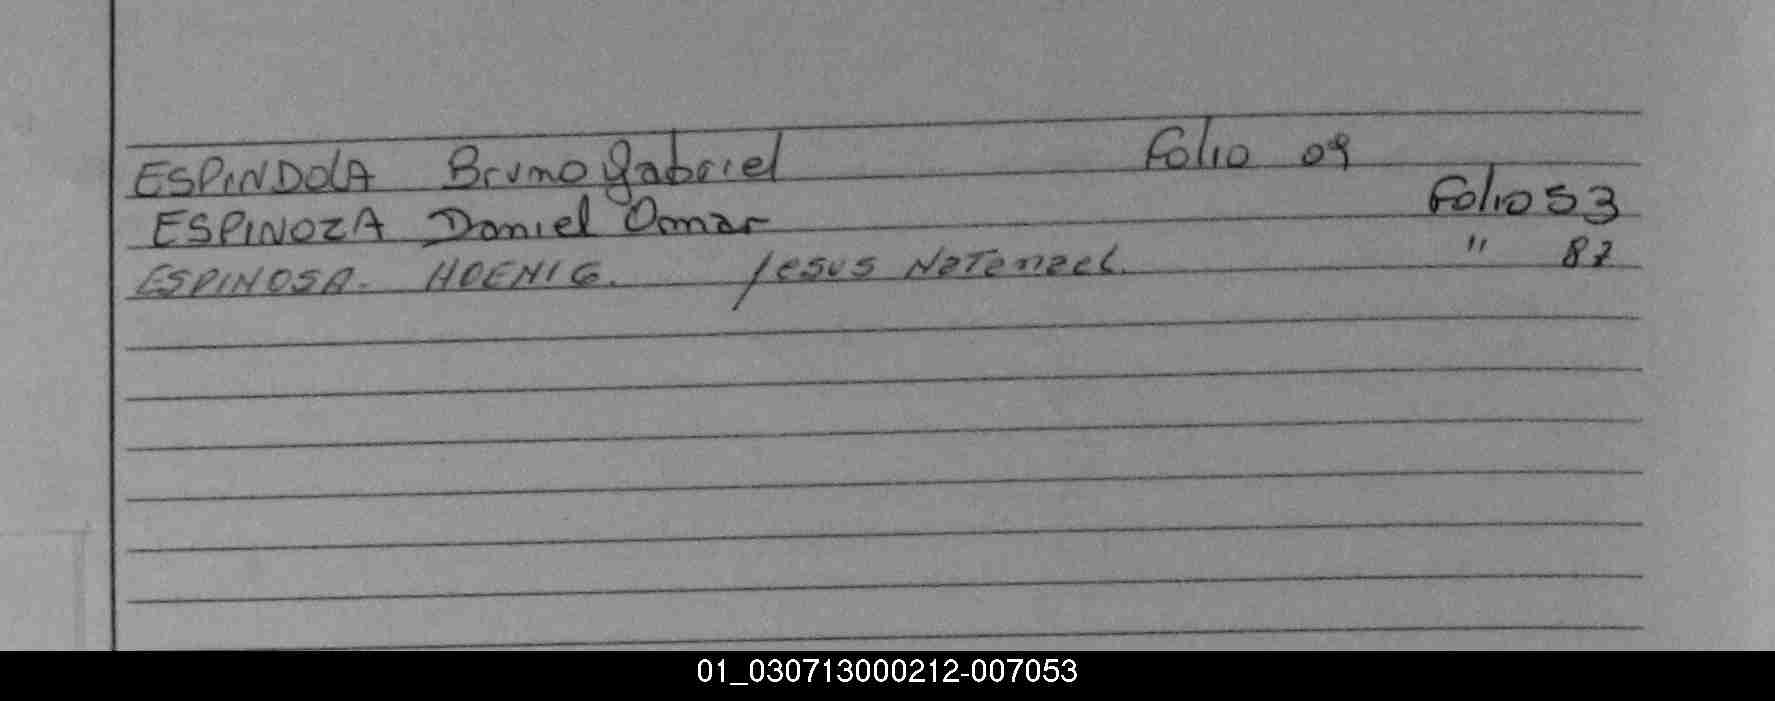 ESPINDOLA Bruno Gabriel Folio 09
ESPINOZA Daniel Omar Folio 53
ESPINOSA. HOENIG. Jesus Natanael. "
01_030713000212-007053